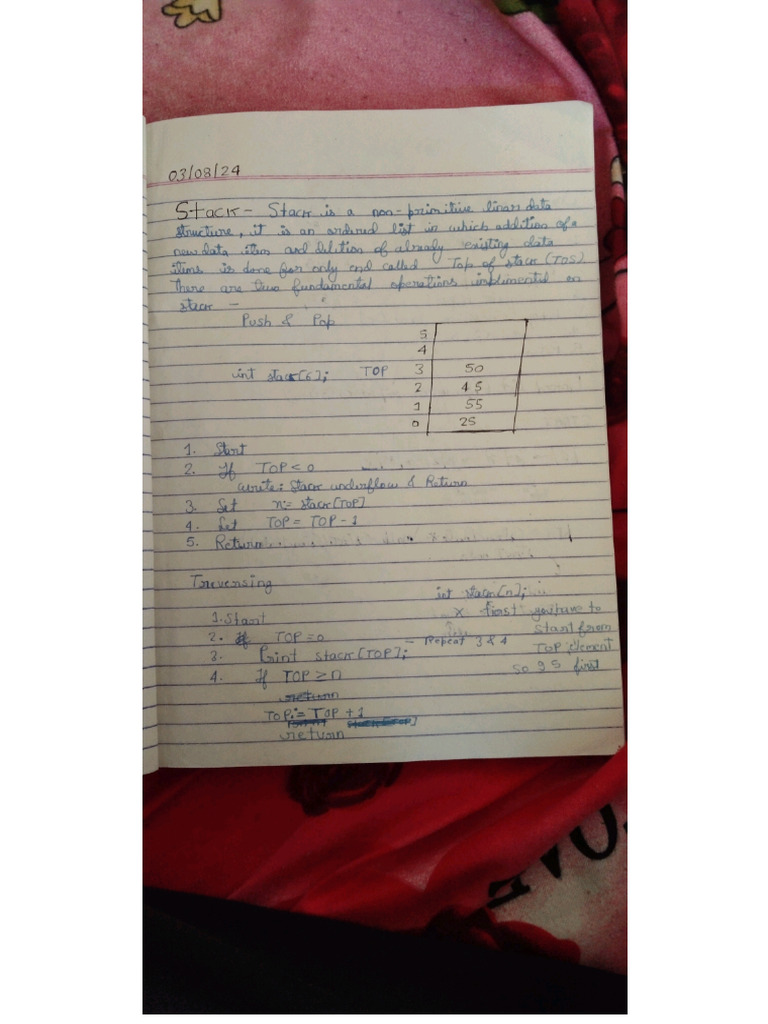 03/08/24
Stack - Stack is a non-primitive linear data
structure, it is an ordered list in which addition of a
new data item and delition of already existing data
items is done for only end called Top of stack (TOS)
There are two fundamental operations implimented on
stack -
Push & Pop
5
4
int stack[6]; TOP 3 50
2 45
1 55
0 25
1. Start
2. If TOP < 0
write: Stack underflow & Return
3. Set n:= stack[TOP]
4. Set TOP = TOP - 1
5. Return
Treversing
int stack[n];
1. Start x first you have to
2. TOP = 0 start from
- Repeat 3 & 4
3. Print stack[TOP]; TOP element
4. If TOP ≥ n so 35 first
return
TOP:= TOP + 1
return